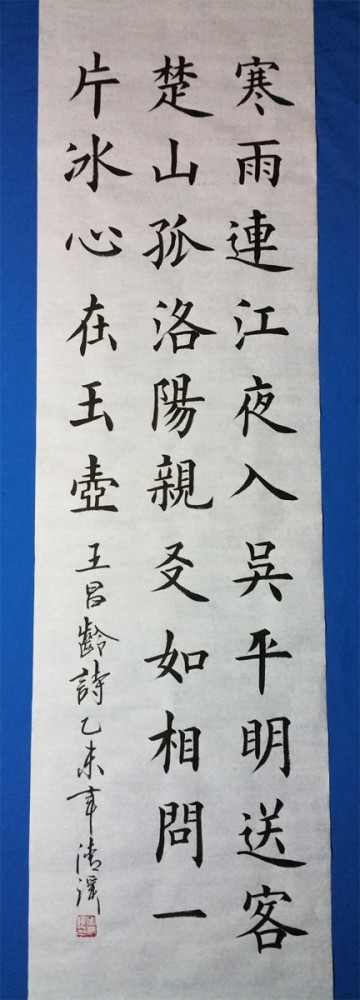 寒雨連江夜入吳平明送客
楚山孤洛陽親友如相問一
片冰心在玉壺
王昌齡詩乙未年清溪